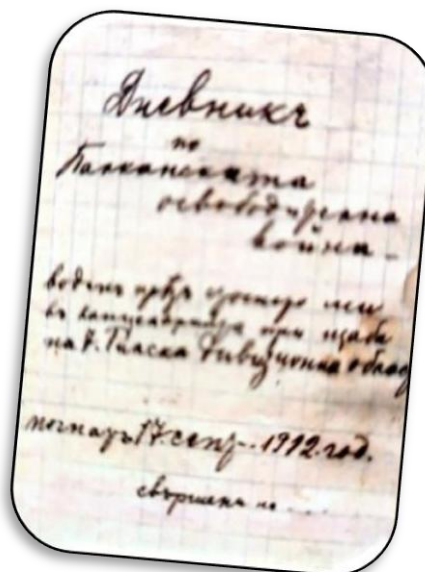 Дневникъ
по
Балканската
освободителна
война -
воденъ презъ        ми
въ канцеларията при щаба
на        Дивизионна област
почнатъ 17 септ. 1912. год.
свършенъ на ....